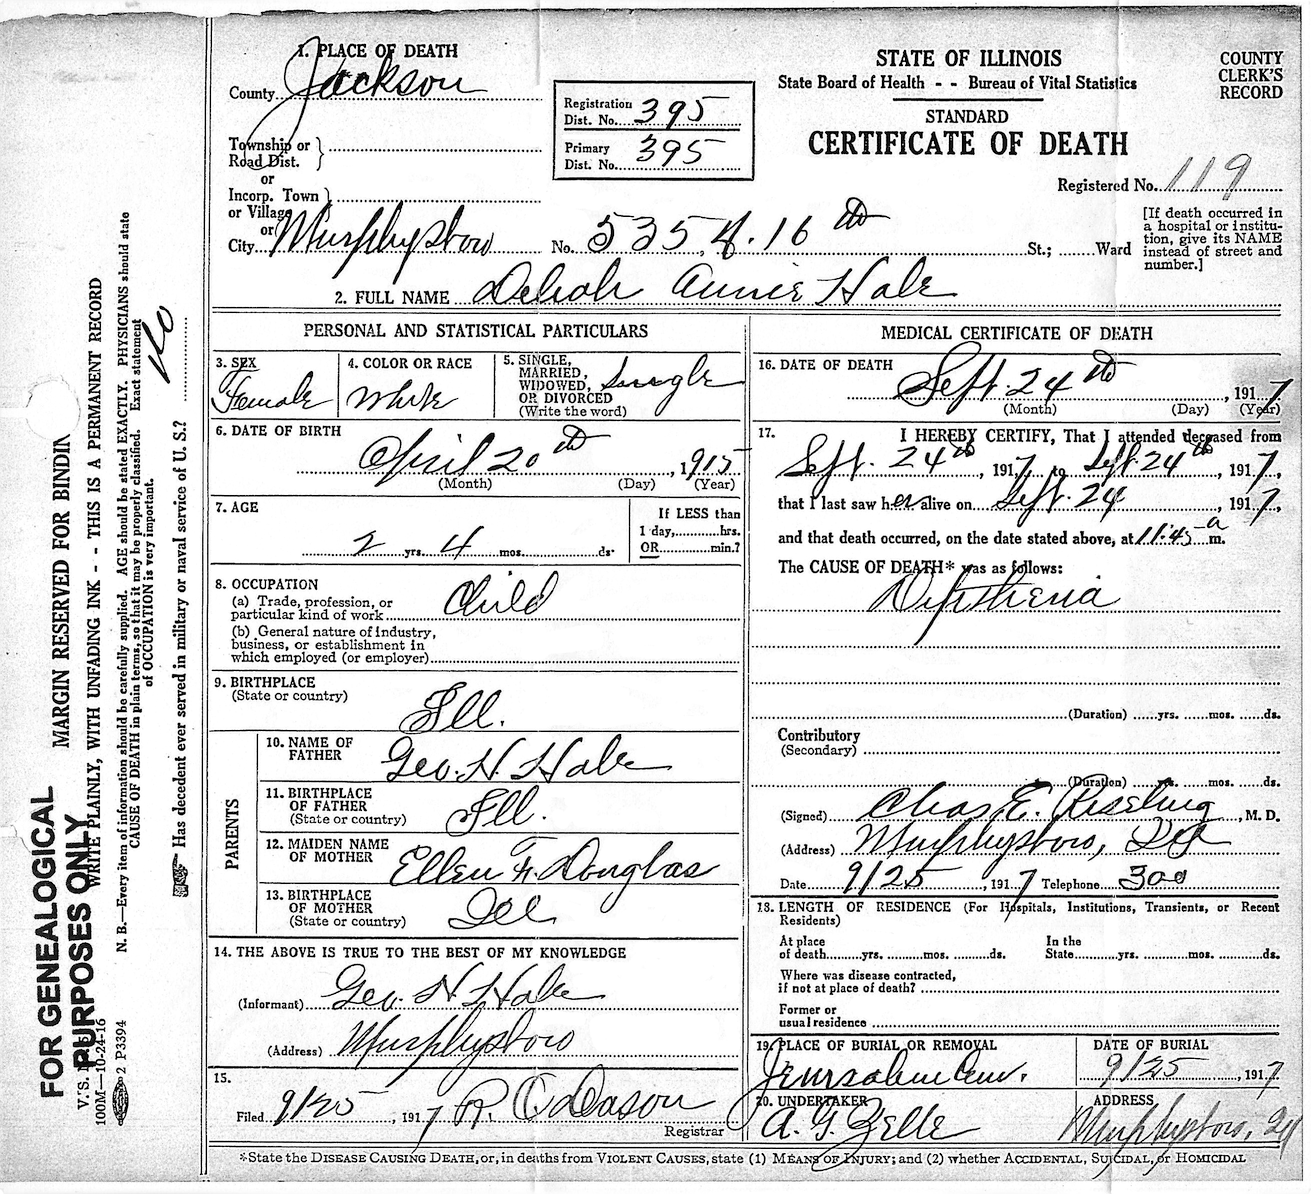 1. PLACE OF DEATH
County Jackson
Township or
Road Dist.
or
Incorp. Town
or Village
or
City Murphysboro No. 535, N. 16th St.; Ward
Registration
Dist. No. 395
Primary
Dist. No. 395
STATE OF ILLINOIS
State Board of Health - - Bureau of Vital Statistics
STANDARD
CERTIFICATE OF DEATH
COUNTY
CLERK'S
RECORD
Registered No. 119
[If death occurred in
a hospital or institu-
tion, give its NAME
instead of street and
number.]
2. FULL NAME Deliah Annie Hale
PERSONAL AND STATISTICAL PARTICULARS
3. SEX
Female
4. COLOR OR RACE
White
5. SINGLE,
MARRIED,
WIDOWED,
OR DIVORCED
(Write the word)
Single
6. DATE OF BIRTH
April 20th, 1915
(Month) (Day) (Year)
7. AGE
2 yrs. 4 mos. ds.
If LESS than
1 day, hrs.
OR min.?
8. OCCUPATION
(a) Trade, profession, or
particular kind of work Child
(b) General nature of industry,
business, or establishment in
which employed (or employer)
9. BIRTHPLACE
(State or country)
Ill.
PARENTS
10. NAME OF
FATHER
Geo. H. Hale
11. BIRTHPLACE
OF FATHER
(State or country)
Ill.
12. MAIDEN NAME
OF MOTHER
Ellen F. Douglas
13. BIRTHPLACE
OF MOTHER
(State or country)
Ill
14. THE ABOVE IS TRUE TO THE BEST OF MY KNOWLEDGE
(Informant) Geo. H Hale
(Address) Murphysboro
15.
Filed 9/25, 1917 R. C. Dason
Registrar
MEDICAL CERTIFICATE OF DEATH
16. DATE OF DEATH
Sept. 24th, 1917
(Month) (Day) (Year)
17. I HEREBY CERTIFY, That I attended deceased from
Sept. 24th, 1917, to Sept. 24th, 1917,
that I last saw her alive on Sept. 24, 1917,
and that death occurred, on the date stated above, at 11:45 a m.
The CAUSE OF DEATH* was as follows:
Diptheria
(Duration) yrs. mos. ds.
Contributory
(Secondary)
(Duration) yrs. mos. ds.
(Signed) Chas. E. Riseling, M. D.
(Address) Murphysboro, Ill
Date 9/25, 1917 Telephone 300
18. LENGTH OF RESIDENCE (For Hospitals, Institutions, Transients, or Recent
Residents)
At place
of death yrs. mos. ds.
In the
State yrs. mos. ds.
Where was disease contracted,
if not at place of death?
Former or
usual residence
19. PLACE OF BURIAL OR REMOVAL
Jerusalem Cem.
DATE OF BURIAL
9/25, 1917
20. UNDERTAKER
A. G. Zelle
ADDRESS
Murphysboro, Ill
*State the DISEASE CAUSING DEATH, or, in deaths from VIOLENT CAUSES, state (1) MEANS OF INJURY; and (2) whether ACCIDENTAL, SUICIDAL, or HOMICIDAL
FOR GENEALOGICAL
PURPOSES ONLY
MARGIN RESERVED FOR BINDIN
WRITE PLAINLY, WITH UNFADING INK - - THIS IS A PERMANENT RECORD
N. B.—Every item of information should be carefully supplied. AGE should be stated EXACTLY. PHYSICIANS should state
CAUSE OF DEATH in plain terms, so that it may be properly classified. Exact statement
of OCCUPATION is very important.
Has decedent ever served in military or naval service of U. S.? No
V. S.
100M—10-24-16
2 P3394